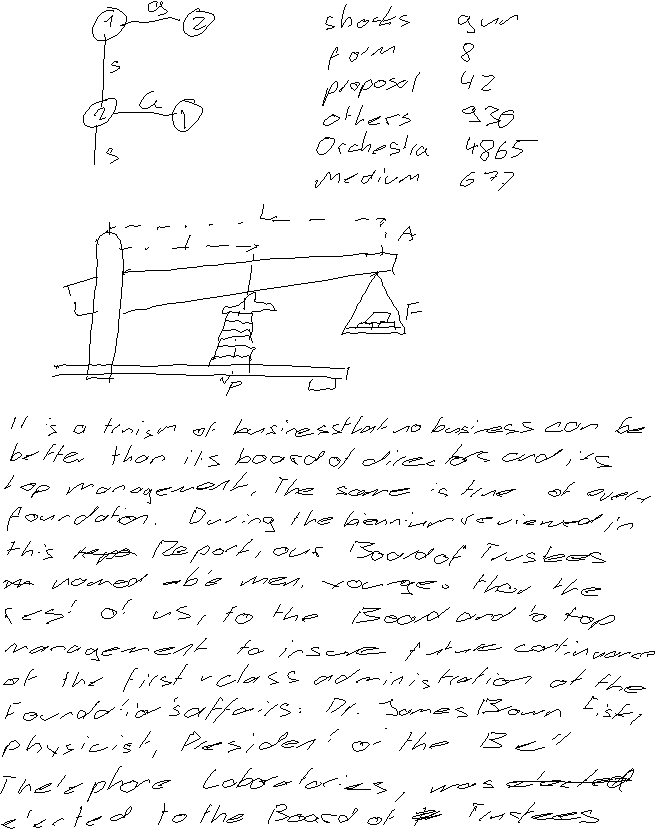 1 2
s
2 G 1
s
shocks gun
form 8
proposal 42
others 930
Orchestra 4865
Medium 677
L
d
A
L
F
P
It is a truism of business that no business can be
better than its board of directors and its
top management. The same is true of every
foundation. During the biennium reviewed in
this Report, our Board of Trustees
named able men, younger than the
rest of us, to the Board and to top
management to insure future continuance
of the first-class administration of the
Foundation's affairs: Dr. James Brown Fisk,
physicist, President of the Bell
Thelephone Laboratories, was elected
elected to the Board of Trustees